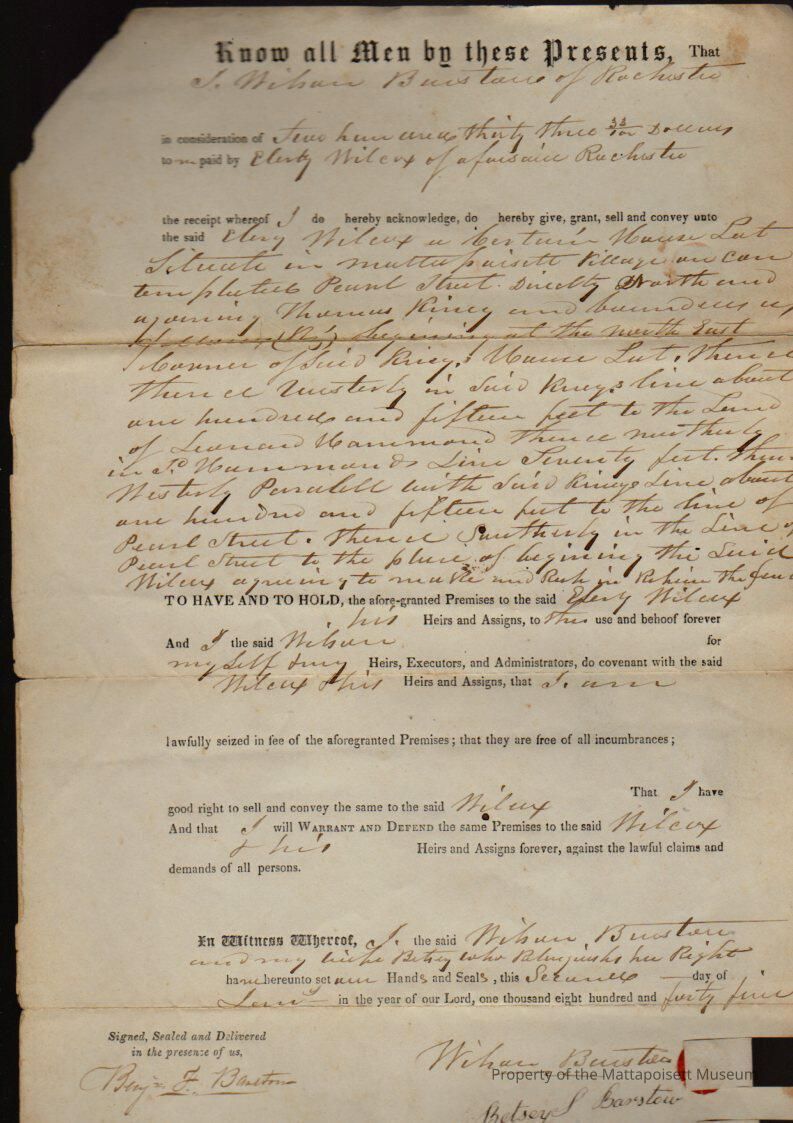 Know all Men by these Presents, That
I. Wilson Barstow of Rochester
in consideration of Two hundred thirty three 33/100 Dollars
to me paid by Elery Wilcox of aforesaid Rochester
the receipt whereof I do hereby acknowledge, do hereby give, grant, sell and convey unto
the said Elery Wilcox a Certain House Lot
Situate in mattapoisett Village on con
templated Pearl Street. Directly North and
ajoining Thomas King and bounded as
follows, beginning at the north East
Corner of Said King,s House Lot, thence
thence Westerly in Said Kings line about
one hundred and fifteen feet to the Land
of Leonard Hammond thence northerly
in Sd Hammonds Line Seventy feet. then
Westerly Paralell with Said Kings Line about
one hundred and fifteen feet to the line of
Pearl Street. thence Southerly in the Line of
Pearl Street to the place of begining the Said
Wilcox agreeing to make and the
TO HAVE AND TO HOLD, the afore-granted Premises to the said Elery Wilcox
his Heirs and Assigns, to his use and behoof forever
And I the said Wilson for
my Self & my Heirs, Executors, and Administrators, do covenant with the said
Wilcox & his Heirs and Assigns, that I. am
lawfully seized in fee of the aforegranted Premises; that they are free of all incumbrances;
That I have
good right to sell and convey the same to the said Wilcox
And that I will WARRANT AND DEFEND the same Premises to the said Wilcox
& his Heirs and Assigns forever, against the lawful claims and
demands of all persons.
In Witness Whereof, I. the said Wilson Barstow
and my wife Betsey who Relinquishs her Right
have hereunto set our Hands and Seals, this Second day of
Jany in the year of our Lord, one thousand eight hundred and forty five
Signed, Sealed and Delivered
in the presence of us,
Wilson Barstow
Benj. F. Barstow
Betsey S Barstow
Property of the Mattapoisett Museum